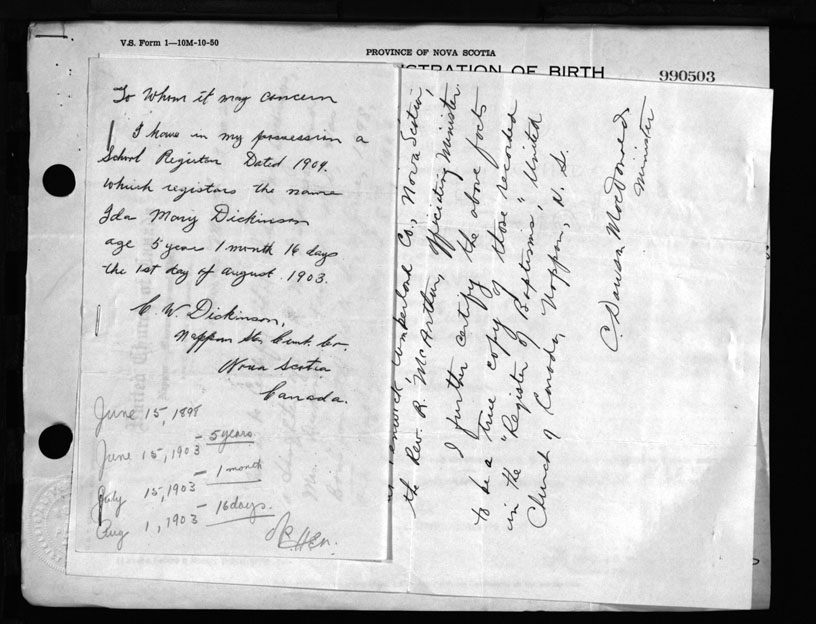 V.S. Form 1—10M-10-50
PROVINCE OF NOVA SCOTIA
STRATION OF BIRTH
990503
To Whom it may concern
I have in my possession a
School Register Dated 1909.
Which registers the name
Ida Mary Dickinson
age 5 years 1 month 16 days
the 1st day of August 1903.
C. W. Dickinson,
Nappan Sta, Cumb. Co.
Nova Scotia
Canada.
June 15, 1898
June 15, 1903 – 5 years
July 15, 1903 – 1 month
Aug 1, 1903 – 16 days.
Cumberland Co., Nova Scotia,
the Rev. R. McArthur, Officiating Minister.
I further certify the above facts
to be a true copy of those recorded
in the "Register of Baptisms," United
Church of Canada, Nappan, N. S.
C. Dawson Macdonald
Minister